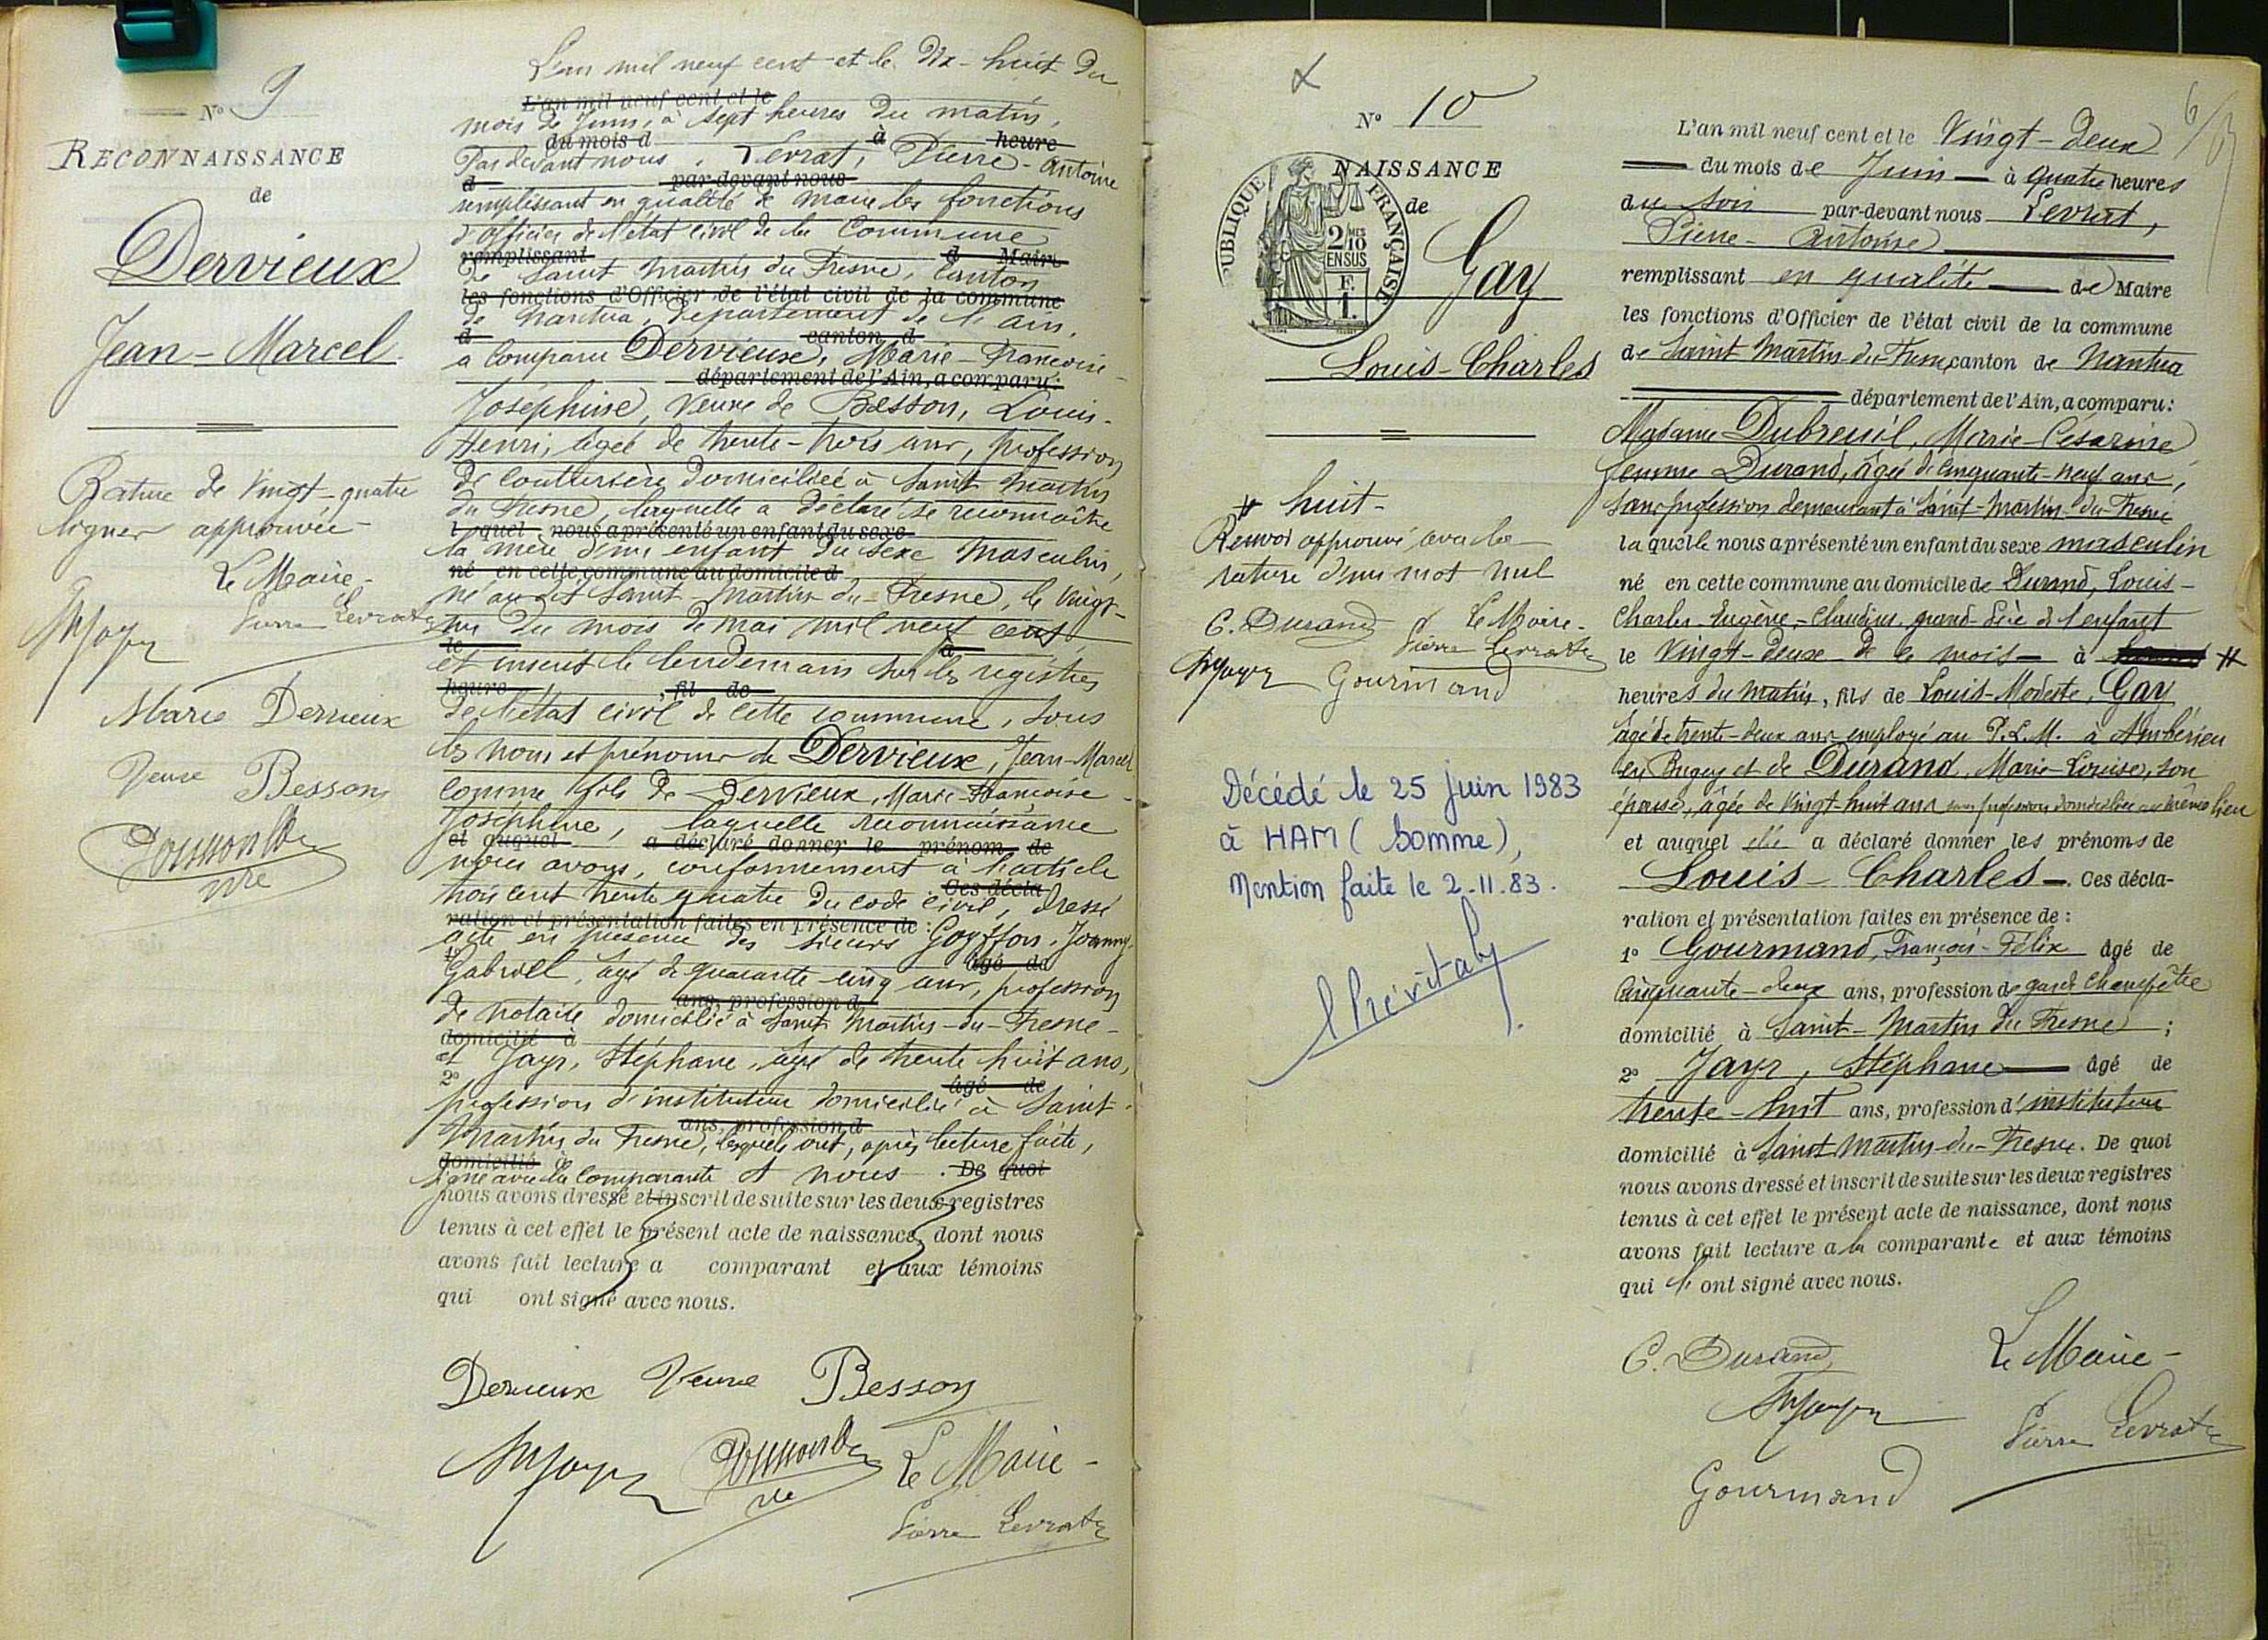 N° 9
RECONNAISSANCE
de
Dervieux
Jean-Marcel
Rature de Vingt-quatre
lignes approuvée
Le Maire-
Pierre Levrat
Marie Dervieux
Veuve Besson
L'an mil neuf cent et le Dix-huit du
L'an mil neuf cent et le
mois de Juin, à sept heures du matin,
du mois d à heure
Par devant nous, Levrat, Pierre-Antoine
d par-devant nous
remplissant en qualité de maire les fonctions
d'officier de l'état civil de la Commune
remplissant d Maire
de Saint Martin du Fresne, Canton
les fonctions d'Officier de l'état civil de la commune
de Nantua, département de l'Ain,
d canton d
a comparu Dervieux, Marie-Françoise-
département de l'Ain, a comparu:
Joséphine, Veuve de Besson, Louis-
Henri, âgée de trente-trois ans, profession
de couturière domiciliée à Saint Martin
du Fresne, laquelle a déclaré se reconnaître
l quel nous a présenté un enfant du sexe
la mère d'un enfant du sexe masculin,
né en cette commune au domicile d
né au dit Saint-Martin-du-Fresne, le Vingt-
un du mois de mai mil neuf cent
le à
et inscrit le lendemain sur les registres
heure fil de
de l'état civil de cette commune, sous
les nom et prénoms de Dervieux, Jean-Marcel
comme fils de Dervieux, Marie-Françoise-
Joséphine, laquelle reconnaissance
et auquel a déclaré donner le prénom de
nous avons, conformément à l'article
Ces décla-
trois cent trente quatre du code civil, dressé
ration et présentation faites en présence de :
acte en présence des sieurs Goyffon, Joanny-
âgé de
Gabriel, âgé de quarante cinq ans, profession
ans, profession d
de notaire domicilié à Saint Martin-du-Fresne-
domicilié à
et Jayr, Stéphane, âgé de trente huit ans,
2° âgé de
profession d'instituteur domicilié à Saint-
ans, profession d
Martin du Fresne, lesquels ont, après lecture faite,
domicilié à
signé avec la comparante et nous. De quoi
nous avons dressé et inscrit de suite sur les deux registres
tenus à cet effet le présent acte de naissance, dont nous
avons fait lecture a comparant et aux témoins
qui ont signé avec nous.
Dervieux Veuve Besson
Le Maire-
Pierre Levrat
N° 10
NAISSANCE
de
RÉPUBLIQUE FRANÇAISE
2/10 MES
EN SUS
F.
1.
Gay
Louis-Charles
# huit-
Renvoi approuvé avec la
rature d'un mot nul
C. Durand Le Maire-
Pierre Levrat
Gourmand
Décédé le 25 juin 1983
à HAM (Somme),
Mention faite le 2.11.83.
L'an mil neuf cent et le Vingt-deux
du mois de Juin à quatre heures
du soir par-devant nous Levrat,
Pierre-Antoine
remplissant en qualité de Maire
les fonctions d'Officier de l'état civil de la commune
de Saint Martin du Fresne canton de Nantua
département de l'Ain, a comparu:
Madame Dubreuil, Marie-Césarine
femme Durand, âgée de cinquante-neuf ans,
sans profession demeurant à Saint-Martin-du-Fresne
laquelle nous a présenté un enfant du sexe masculin
né en cette commune au domicile de Durand, Louis-
Charles-Eugène-Claudius, grand-père de l'enfant
le Vingt-deux de ce mois à #
heures du matin, fils de Louis-Modeste, Gay
âgé de trente-deux ans employé au P.L.M. à Ambérieu
en Bugey et de Durand, Marie-Louise, son
épouse, âgée de vingt-huit ans sans profession domiciliée au même lieu
et auquel elle a déclaré donner les prénoms de
Louis-Charles. Ces décla-
ration et présentation faites en présence de :
1° Gourmand, François-Félix âgé de
Cinquante-deux ans, profession de garde champêtre
domicilié à Saint-Martin du Fresne ;
2° Jayr, Stéphane âgé de
trente-huit ans, profession d'instituteur
domicilié à Saint Martin-du-Fresne. De quoi
nous avons dressé et inscrit de suite sur les deux registres
tenus à cet effet le présent acte de naissance, dont nous
avons fait lecture a la comparante et aux témoins
qui l'ont signé avec nous.
C. Durand Le Maire-
Pierre Levrat
Gourmand